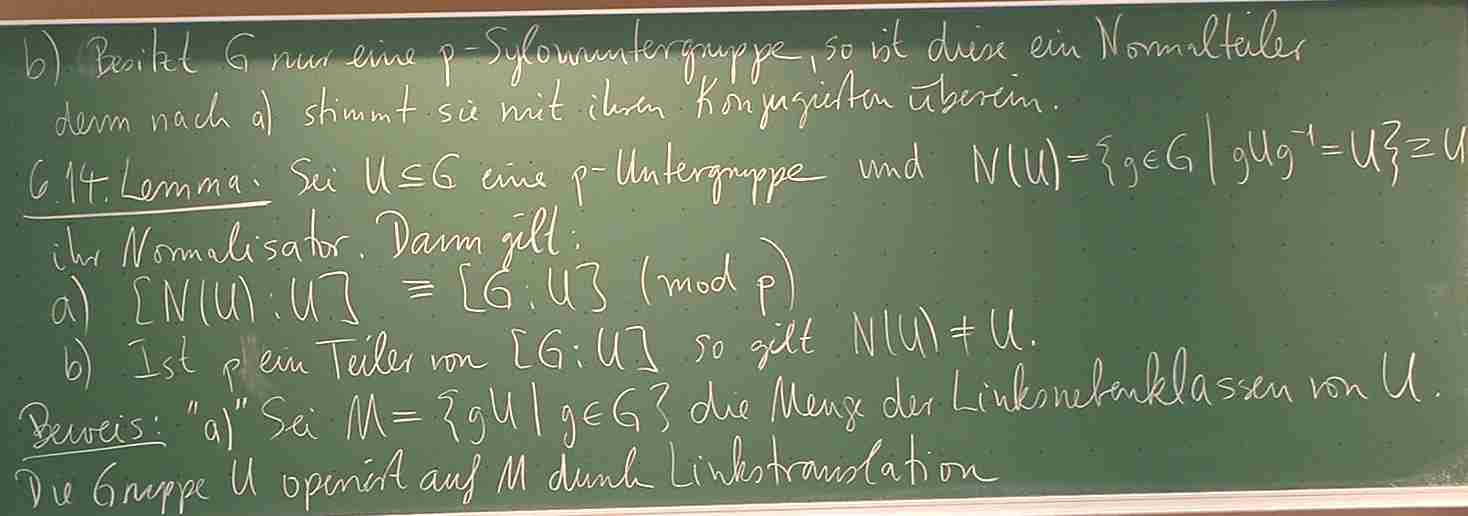 b) Besitzt G nur eine p-Sylowuntergruppe, so ist diese ein Normalteiler
denn nach a) stimmt sie mit ihren Konjugierten überein.
6.14. Lemma: Sei U ≤ G eine p-Untergruppe und N(U) = {g ∈ G | gUg⁻¹ = U} ≥ U
ihr Normalisator. Dann gilt:
a) [N(U) : U] ≡ [G : U] (mod p)
b) Ist p ein Teiler von [G : U] so gilt N(U) ≠ U.
Beweis: "a)" Sei M = {gU | g ∈ G} die Menge der Linksnebenklassen von U.
Die Gruppe U operiert auf M durch Linkstranslation